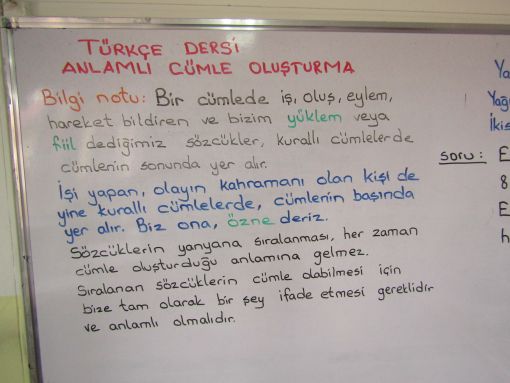 TÜRKÇE DERSİ
ANLAMLI CÜMLE OLUŞTURMA
Bilgi notu: Bir cümlede iş, oluş, eylem,
hareket bildiren ve bizim yüklem veya
fiil dediğimiz sözcükler, kurallı cümlelerde
cümlenin sonunda yer alır.
İşi yapan, olayın kahramanı olan kişi de
yine kurallı cümlelerde, cümlenin başında
yer alır. Biz ona, özne deriz.
Sözcüklerin yanyana sıralanması, her zaman
cümle oluşturduğu anlamına gelmez.
Sıralanan sözcüklerin cümle olabilmesi için
bize tam olarak bir şey ifade etmesi gereklidir
ve anlamlı olmalıdır.
Ya
Yağı
İkis
soru: E
8
E
h